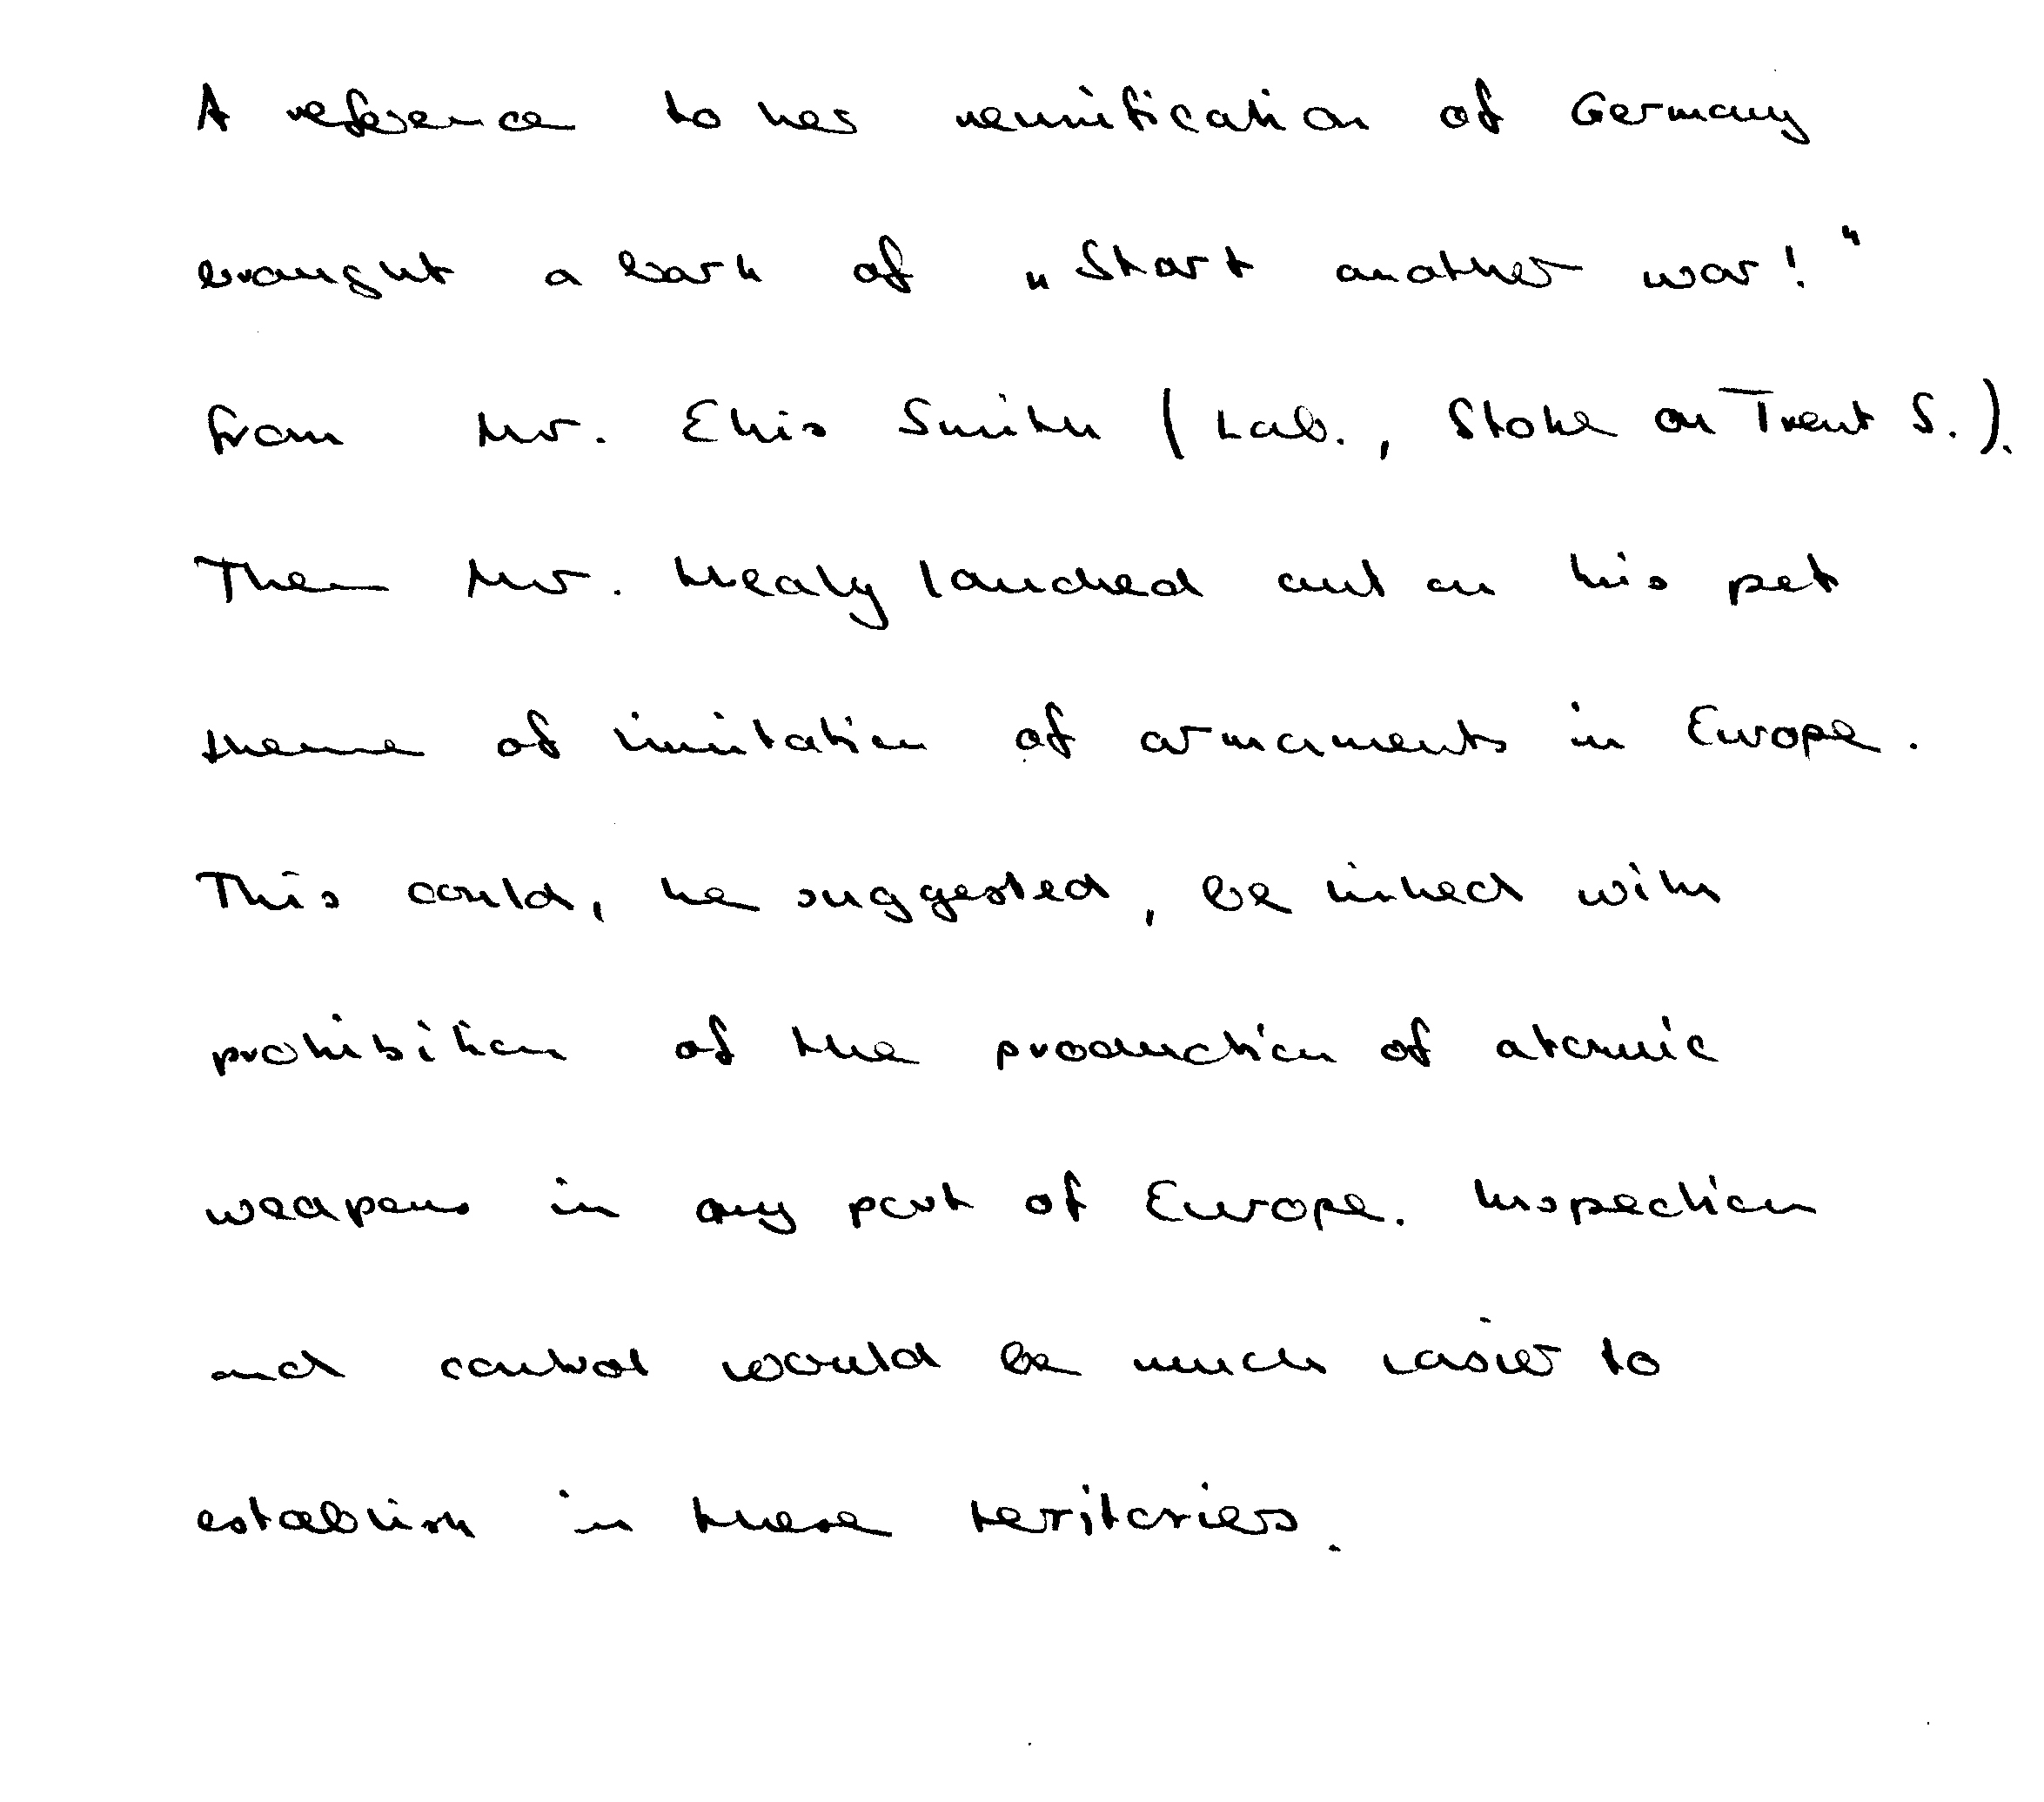 A reference to hes reunification of Germany
brought a bark of „Start another war!"
from Mr. Ellis Smith (Lab., Stoke on Trent S.).
Then Mr. Healy lauched out on his pet
theme of limitation of armaments in Europe.
This could, he suggested, be linked with
prohibition of the production of atomic
weapons in any part of Europe. Inspection
and control would be much easier to
establish in these teritories.